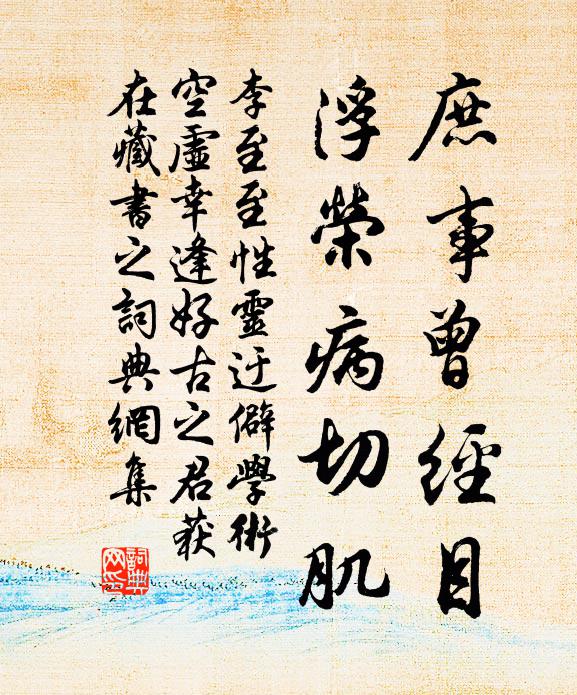 庶事曾經目
浮榮病切肌
李至至性靈迂僻學術
空虛幸逢好古之君获
在藏書之詞典網集
詞典网印